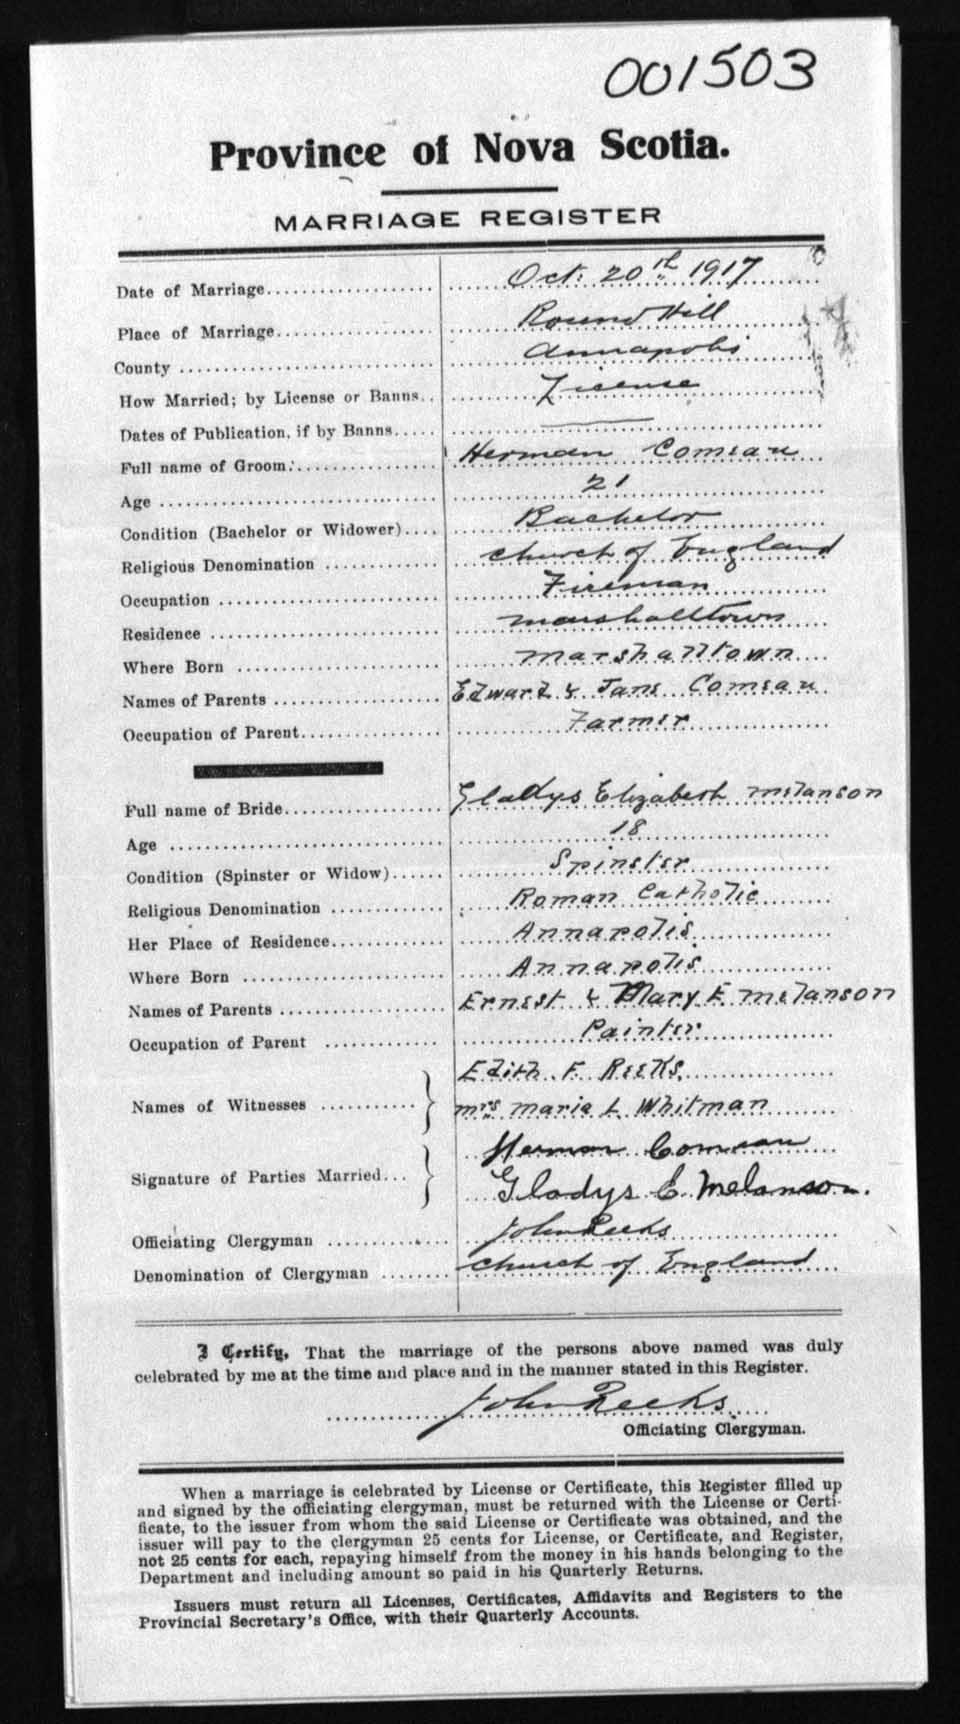 001503
Province of Nova Scotia.
MARRIAGE REGISTER
Date of Marriage Oct. 20th 1917
Place of Marriage Round Hill
County Annapolis
How Married; by License or Banns License
Dates of Publication, if by Banns
Full name of Groom Herman Comeau
Age 21
Condition (Bachelor or Widower) Bachelor
Religious Denomination Church of England
Occupation Fireman
Residence Marshalltown
Where Born Marshalltown
Names of Parents Edward & Jane Comeau
Occupation of Parent Farmer
Full name of Bride Gladys Elizabeth Melanson
Age 18
Condition (Spinster or Widow) Spinster
Religious Denomination Roman Catholic
Her Place of Residence Annapolis
Where Born Annapolis
Names of Parents Ernest & Mary E. Melanson
Occupation of Parent Painter
Edith F. Reeks.
Names of Witnesses
Mrs Marie L. Whitman
Herman Comeau
Signature of Parties Married
Gladys E. Melanson.
Officiating Clergyman John Reeks
Denomination of Clergyman Church of England
I Certify, That the marriage of the persons above named was duly
celebrated by me at the time and place and in the manner stated in this Register.
John Reeks
Officiating Clergyman.
When a marriage is celebrated by License or Certificate, this Register filled up
and signed by the officiating clergyman, must be returned with the License or Certi-
ficate, to the issuer from whom the said License or Certificate was obtained, and the
issuer will pay to the clergyman 25 cents for License, or Certificate, and Register,
not 25 cents for each, repaying himself from the money in his hands belonging to the
Department and including amount so paid in his Quarterly Returns.
Issuers must return all Licenses, Certificates, Affidavits and Registers to the
Provincial Secretary's Office, with their Quarterly Accounts.